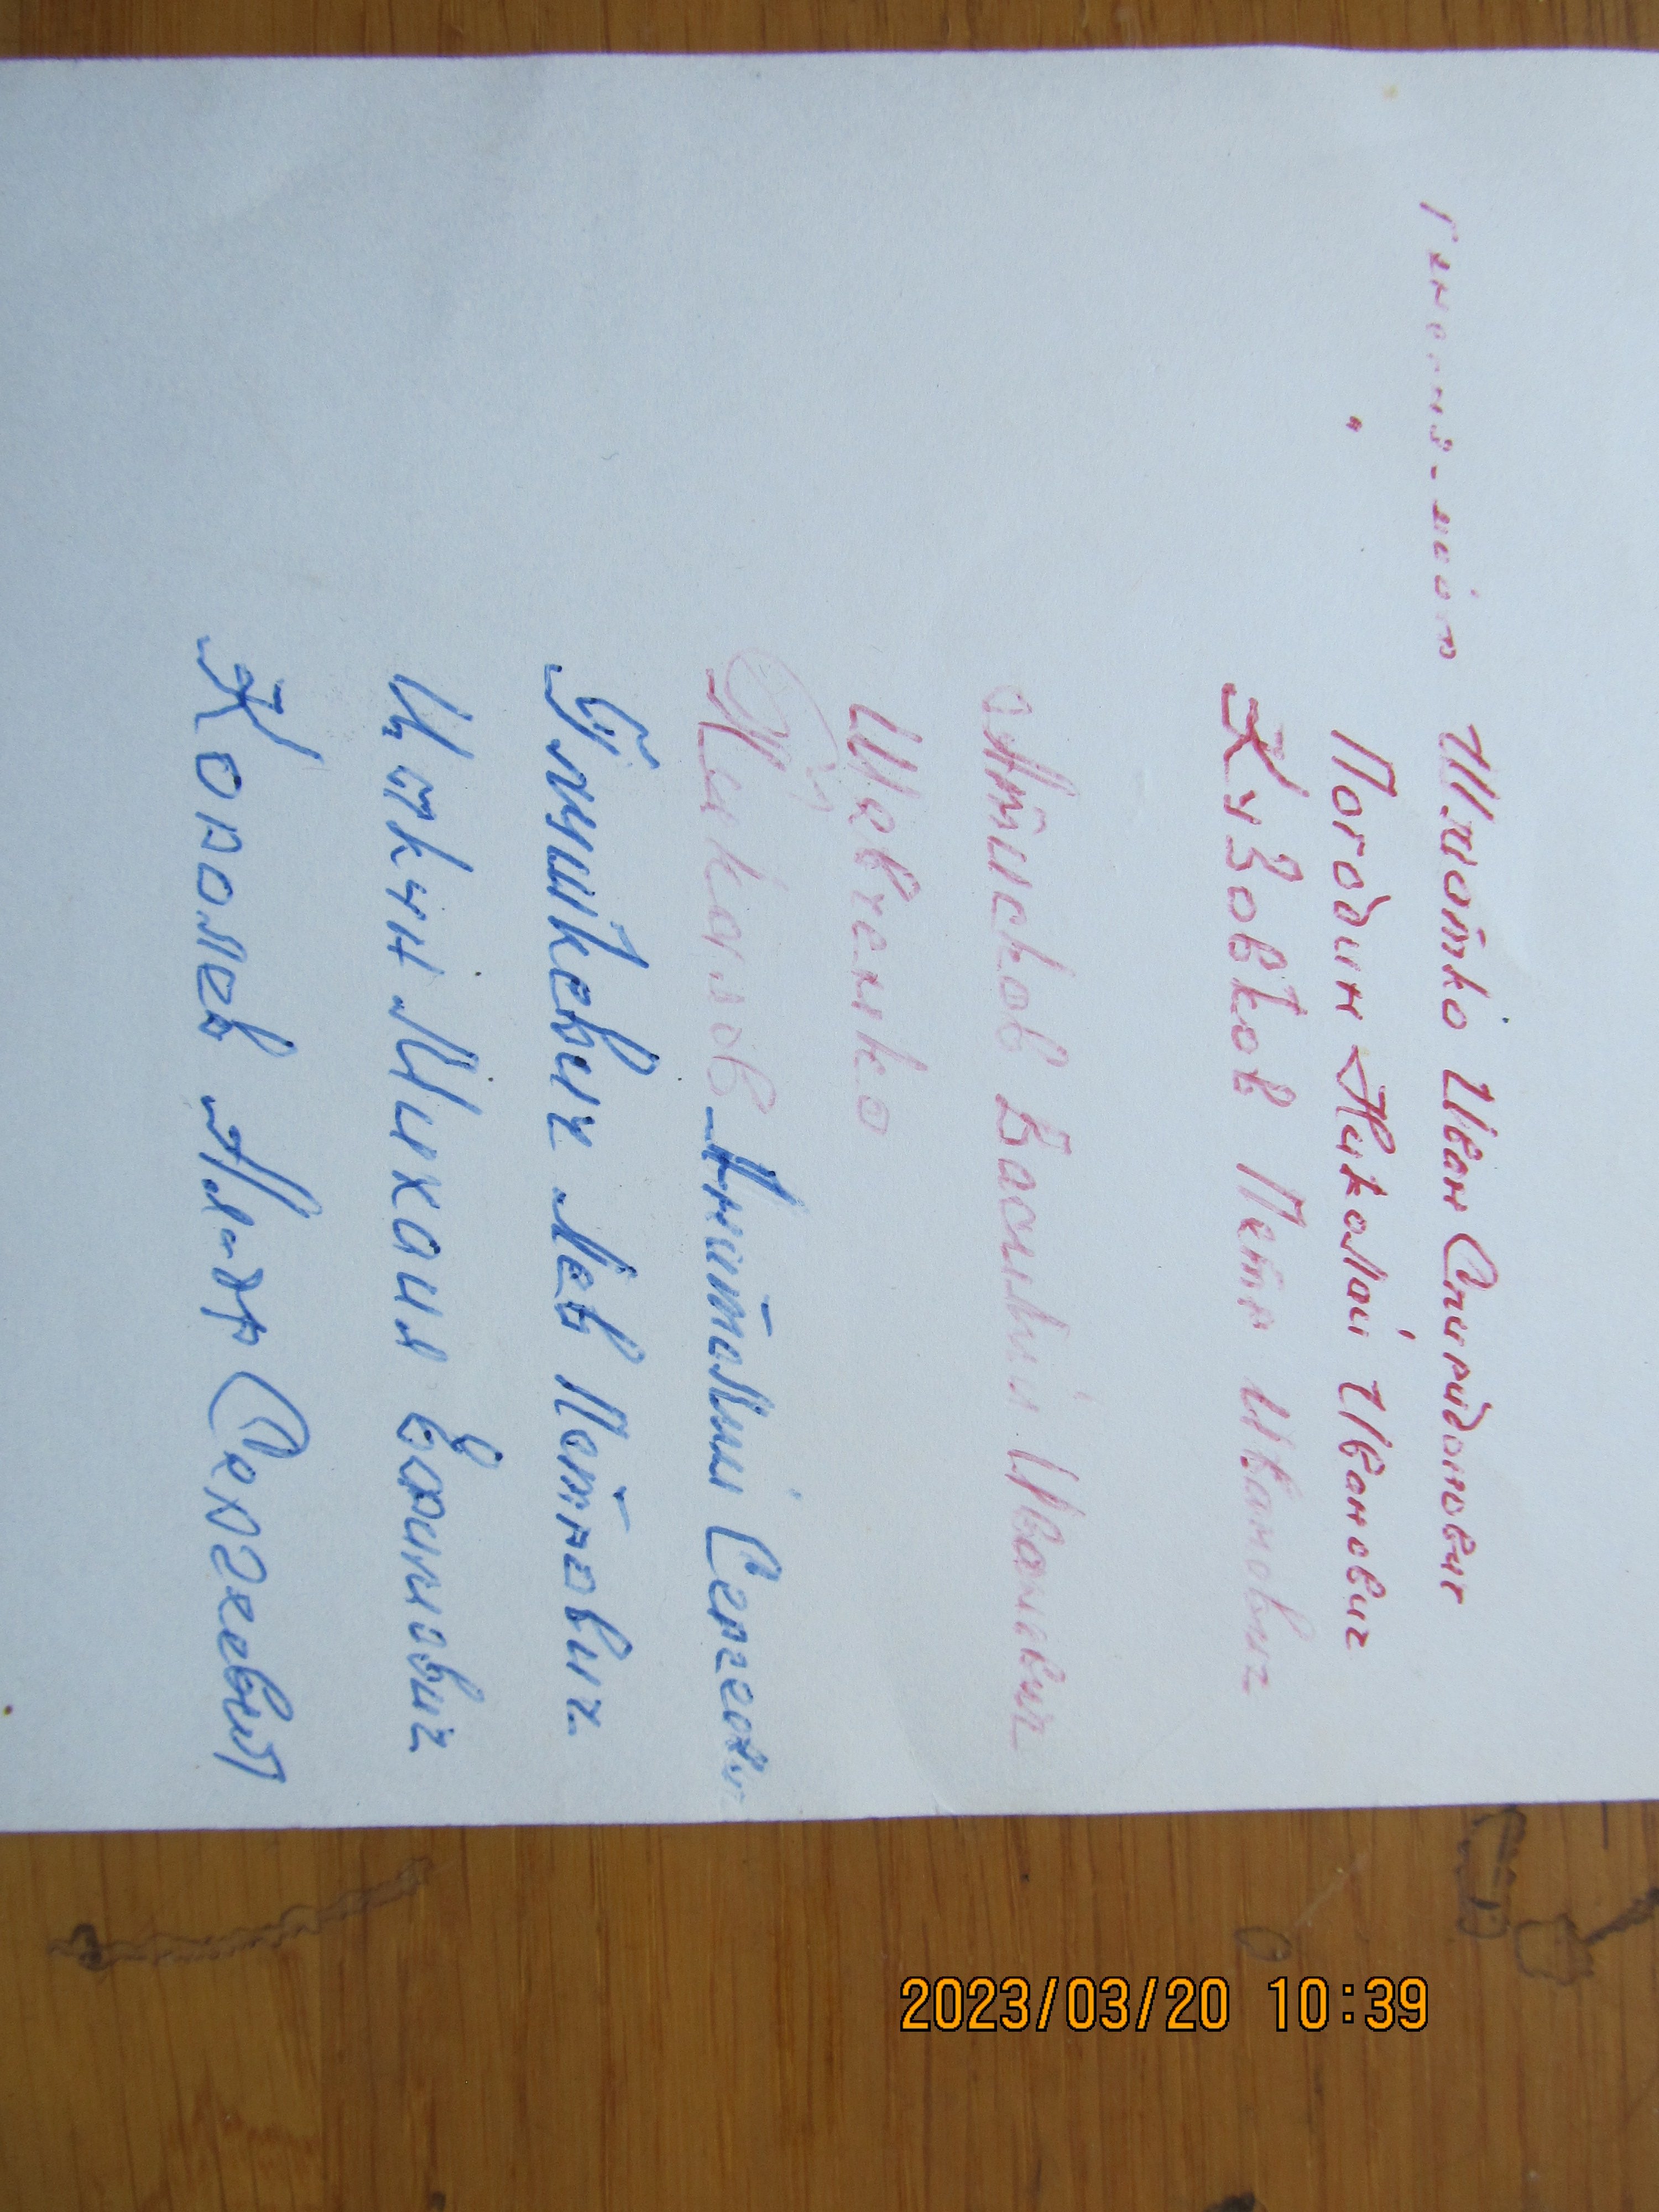 Генерал-майор Шкотко Иван Спиридонович
" Погодин Николай Иванович
Кузовков Петр Иванович
Антисков Василий Иванович
Шевченко
Пискалов Анатолий Сергеевич
Глушкевич Лев Петрович
Цаткун Михаил Ефимович
Королев Ал-др Сергеевич
2023/03/20 10:39